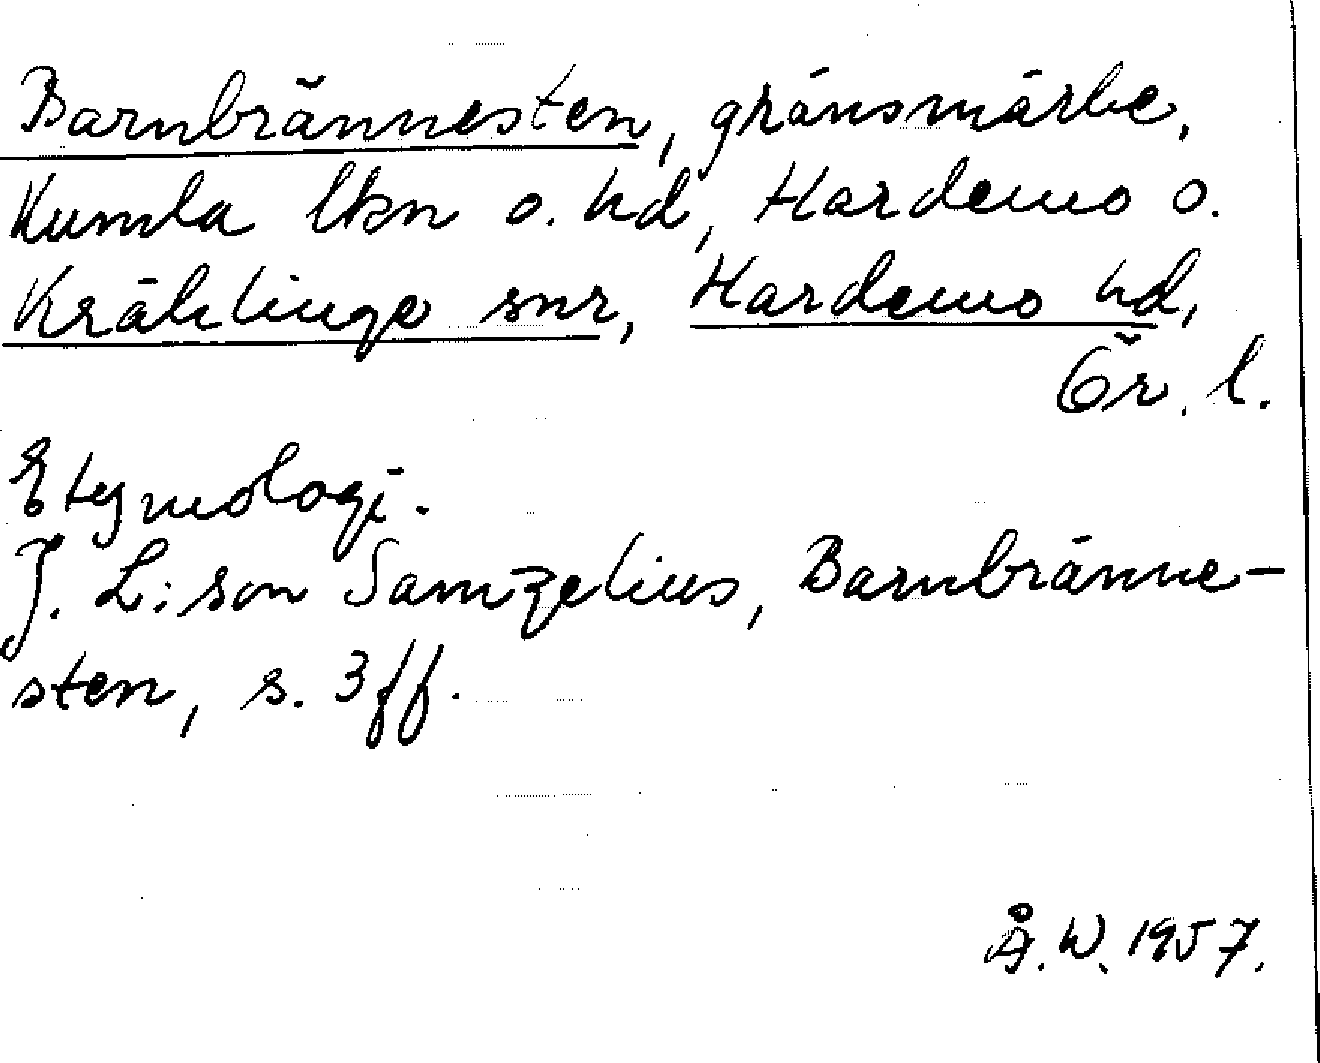 Barnbrännesten, gränsmärke,
Kumla lkn o. hd, Hardemo o.
Kräklinge snr, Hardemo hd,
Ör. l.
Etymologi.
J. L:son Samzelius, Barnbränne-
sten, s. 3ff.
Å.W. 1957.